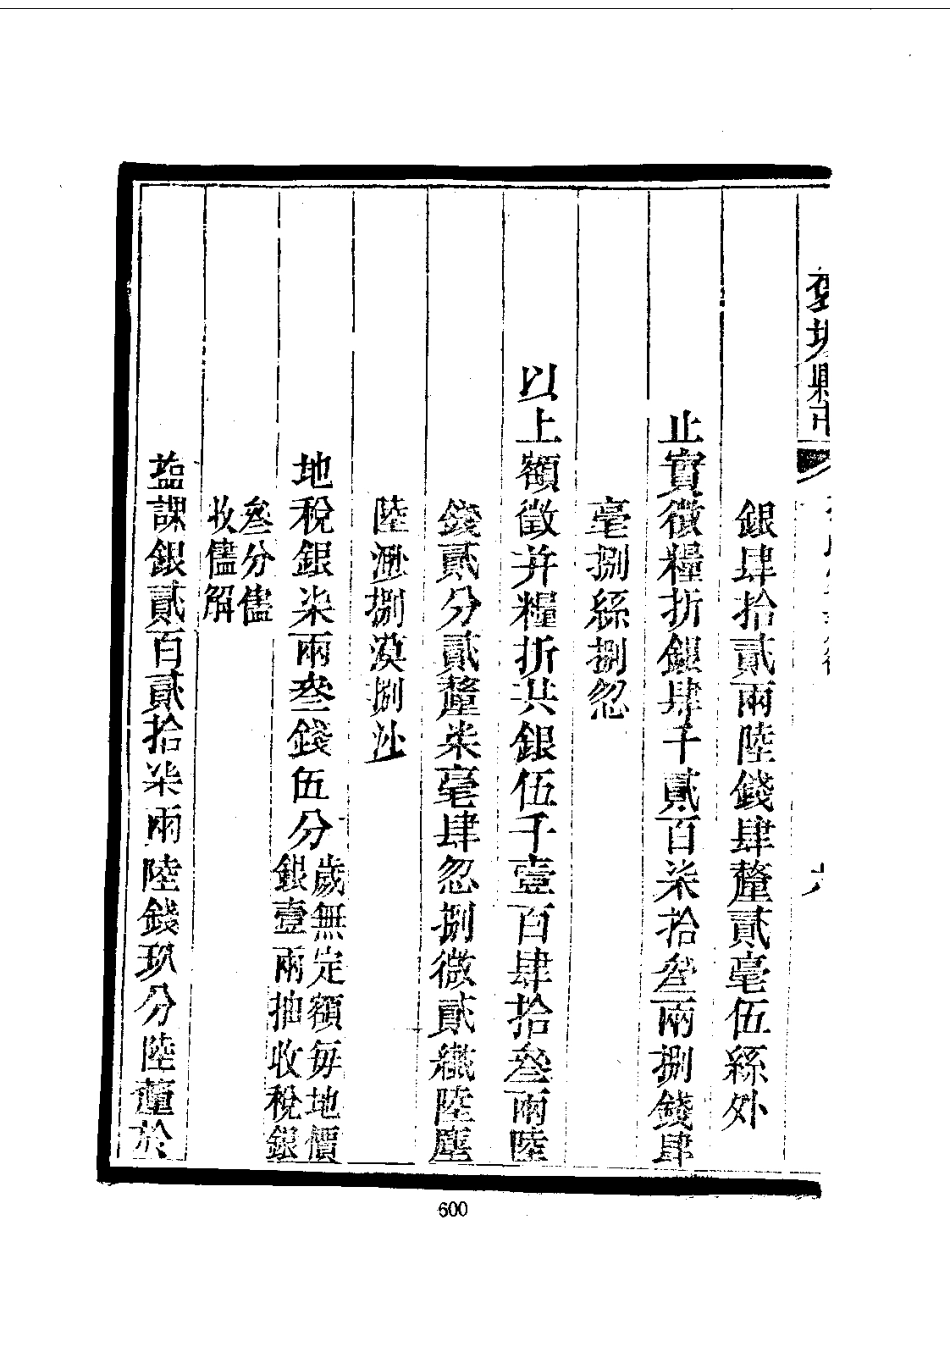 襃城縣志
六
銀肆拾貳兩陸錢肆釐貳毫伍絲外
止實徵糧折銀肆千貳百柒拾叁兩捌錢肆
毫捌絲捌忽
以上額徵并糧折共銀伍千壹百肆拾叁兩陸
錢貳分貳釐柒毫肆忽捌微貳纖陸塵
陸渺捌漠捌沙
地稅銀柒兩叁錢伍分
歲無定額每地價
銀壹兩抽收稅銀
叁分儘
收儘解
塩課銀貳百貳拾柒兩陸錢玖分陸釐於
600